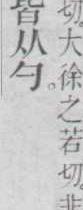 切大徐之若切非
皆从勺。